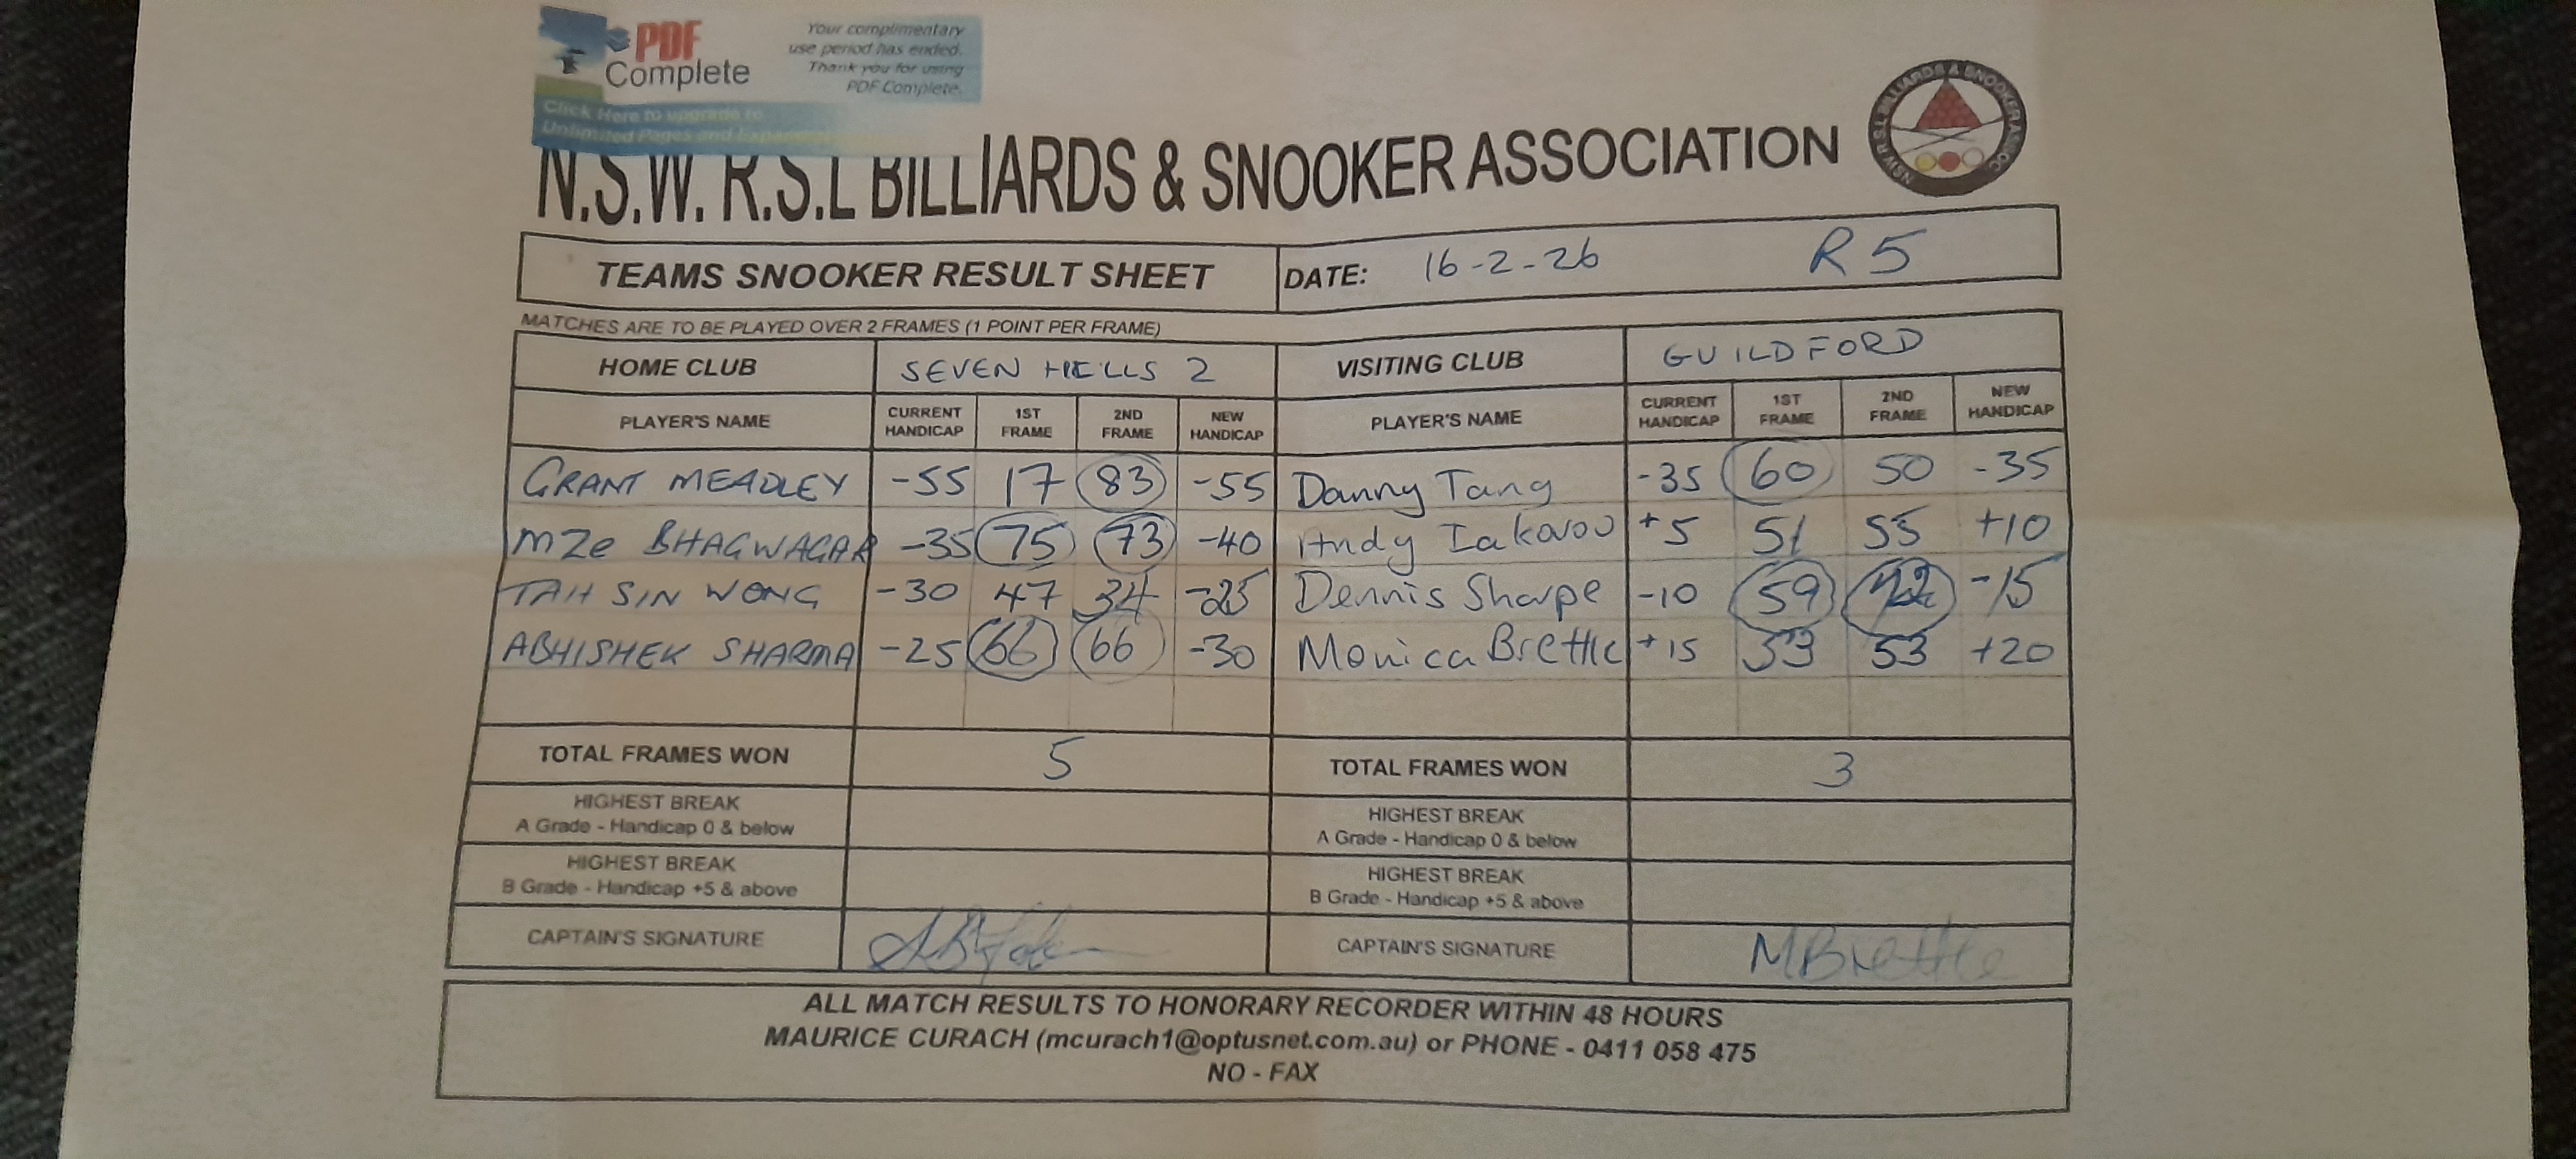 PDF Complete
Your complimentary
use period has ended.
Thank you for using
PDF Complete.
Click Here to upgrade to
Unlimited Pages and
N.S.W. R.S.L BILLIARDS & SNOOKER ASSOCIATION
NSW R.S.L BILLIARDS & SNOOKER ASSOC.
TEAMS SNOOKER RESULT SHEET DATE: 16-2-26 R5
MATCHES ARE TO BE PLAYED OVER 2 FRAMES (1 POINT PER FRAME)
HOME CLUB SEVEN HILLS 2 VISITING CLUB GUILDFORD
PLAYER'S NAME CURRENT HANDICAP 1ST FRAME 2ND FRAME NEW HANDICAP PLAYER'S NAME CURRENT HANDICAP 1ST FRAME 2ND FRAME NEW HANDICAP
GRANT MEADLEY -55 17 83 -55 Danny Tang -35 60 50 -35
MZe BHAGWAGAR -35 75 73 -40 Andy Iakovou +5 51 55 +10
TAH SIN WONG -30 47 34 -25 Dennis Sharpe -10 59 -15
ABHISHEK SHARMA -25 66 66 -30 Monica Brettle +15 53 +20
TOTAL FRAMES WON 5 TOTAL FRAMES WON 3
HIGHEST BREAK HIGHEST BREAK
A Grade - Handicap 0 & below A Grade - Handicap 0 & below
HIGHEST BREAK HIGHEST BREAK
B Grade - Handicap +5 & above B Grade - Handicap +5 & above
CAPTAIN'S SIGNATURE CAPTAIN'S SIGNATURE MBrettle
ALL MATCH RESULTS TO HONORARY RECORDER WITHIN 48 HOURS
MAURICE CURACH (mcurach1@optusnet.com.au) or PHONE - 0411 058 475
NO - FAX